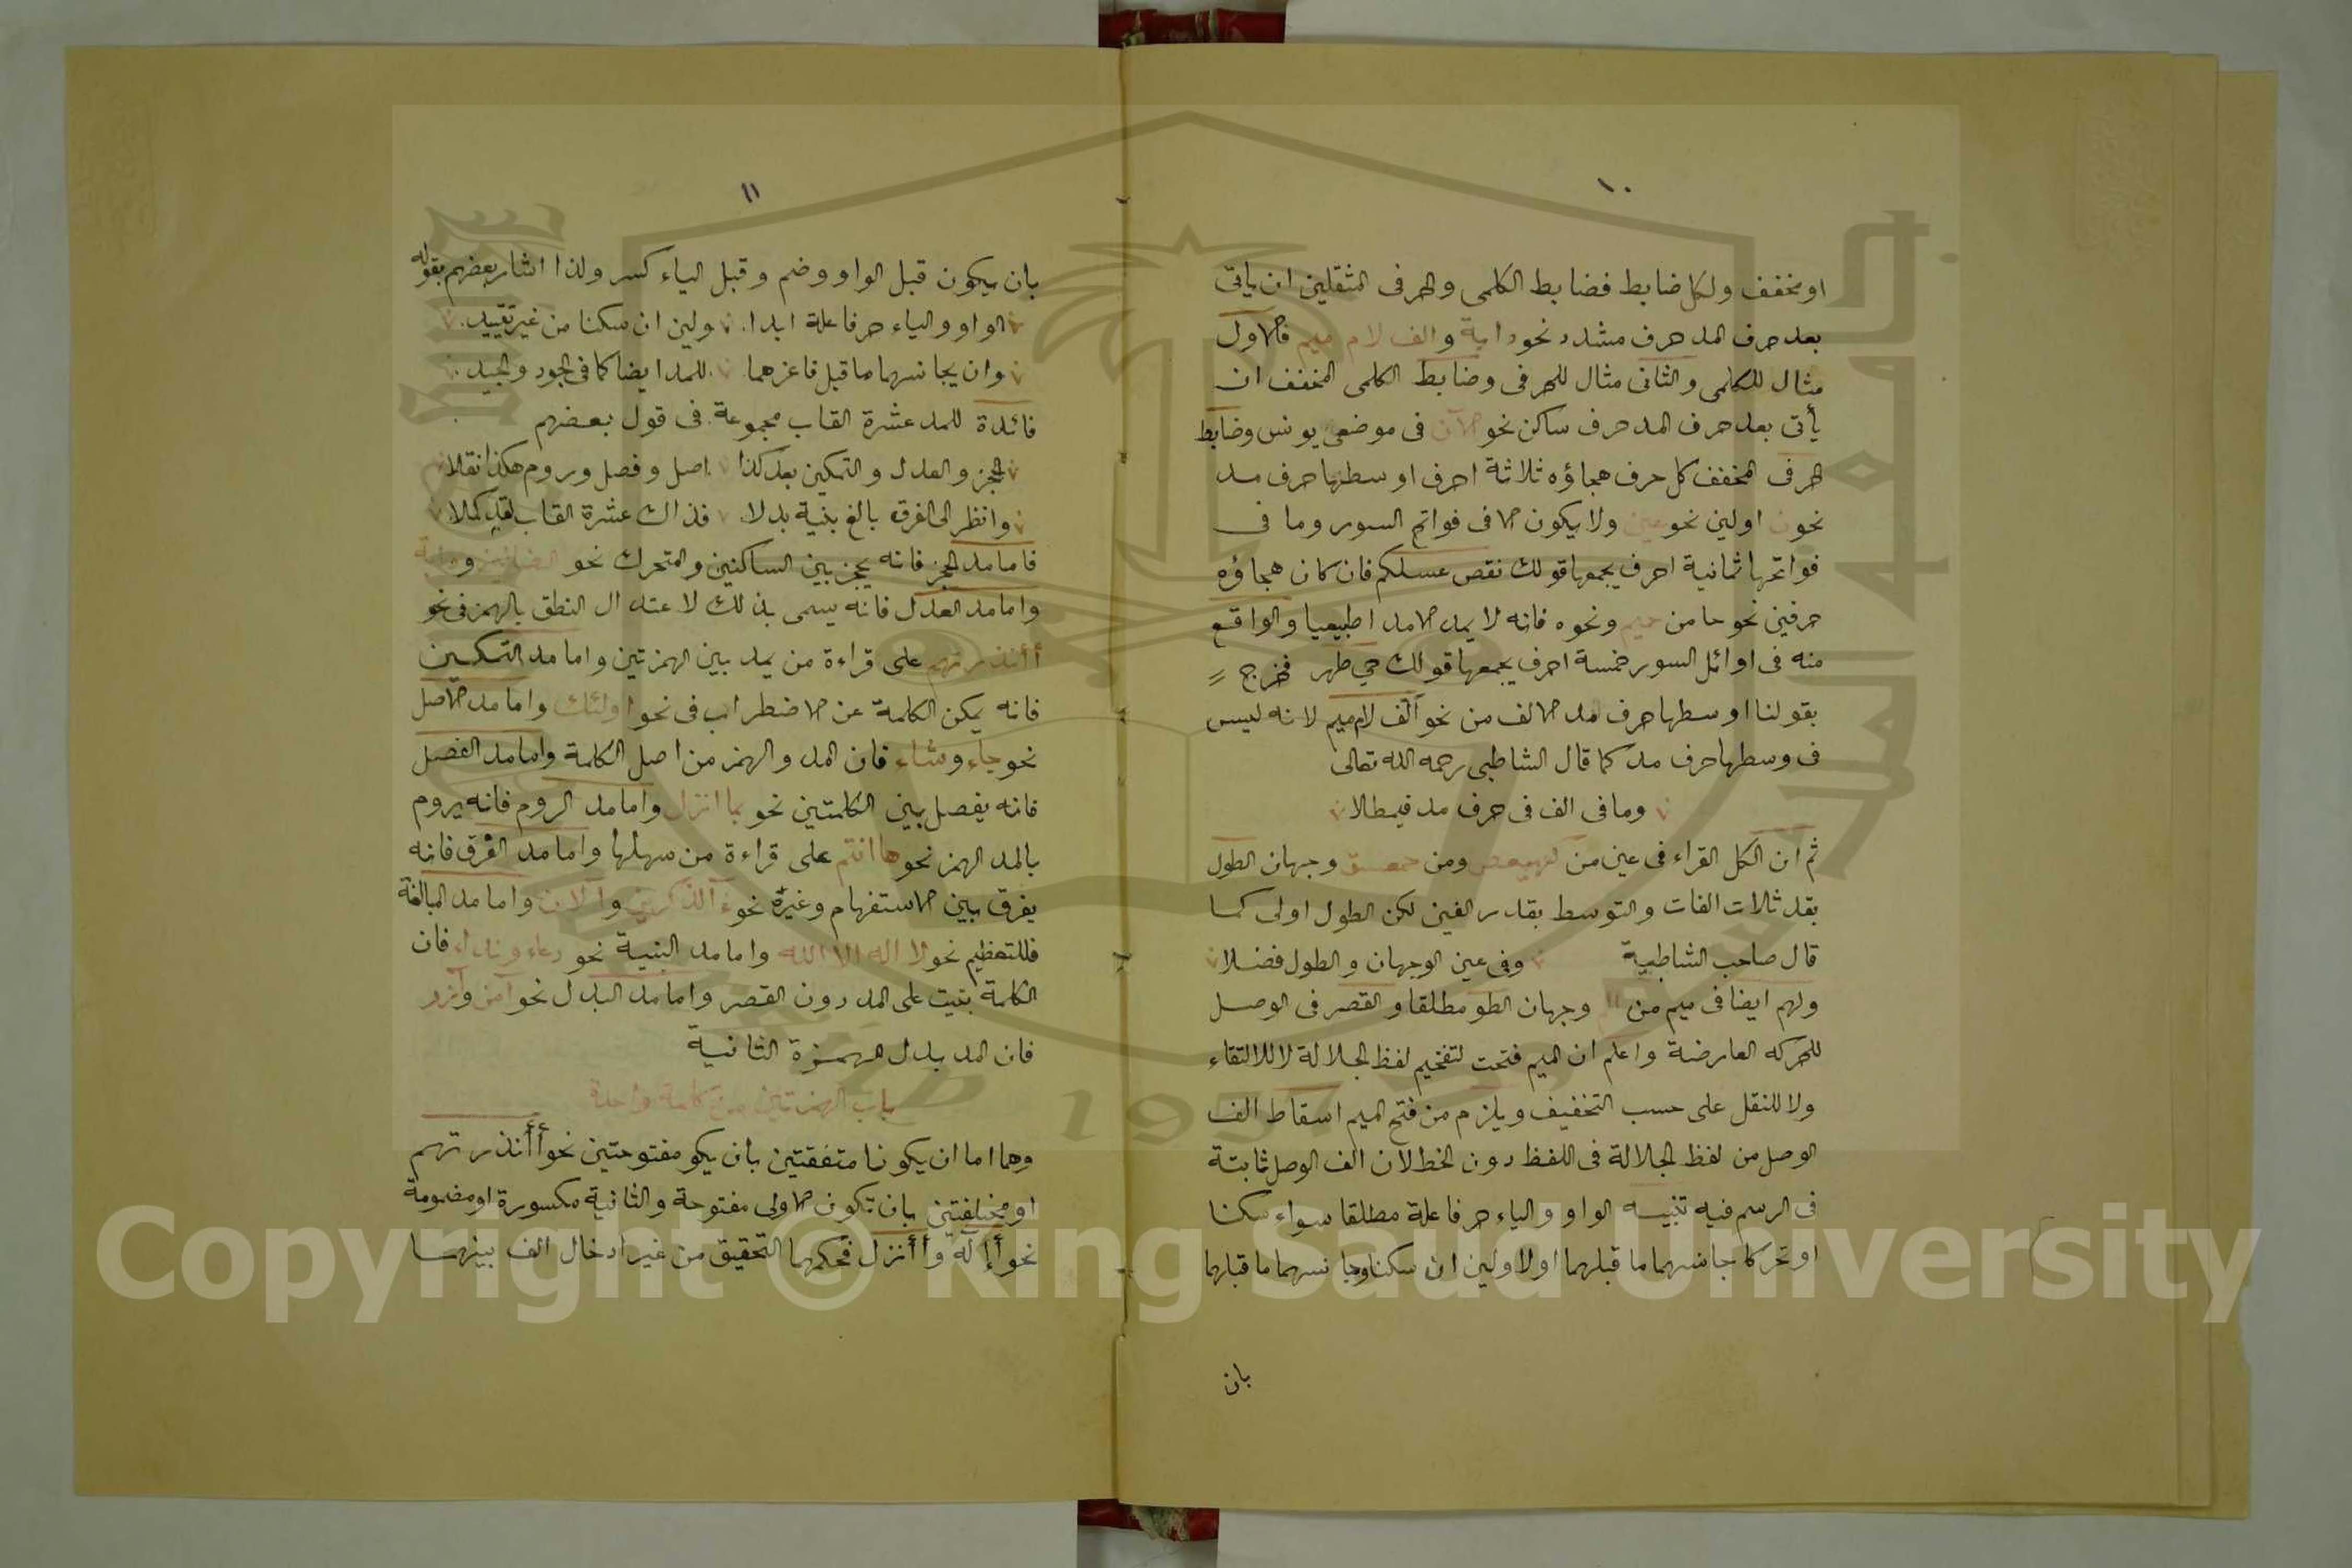 ١٠
او مخفف ولكل ضابط فضابط الكلمى والحرفى المثقلين ان ياتى
بعد حرف المد حرف مشدد نحو دابة والف لام ميم فالاول
مثال للكلمى والثانى مثال للحرفى وضابط الكلمى المخفف ان
يأتى بعد حرف المد حرف ساكن نحو الآن فى موضعى يونس وضابط
الحرفى المخفف كل حرف هجاؤه ثلاثة احرف اوسطها حرف مد
نحو ن اولين نحو عين ولا يكون الا فى فواتح السور وما فى
فواتحها ثمانية احرف يجمعها قولك نقص عسلكم فان كان هجاؤه
حرفين نحو حا من حميم ونحوه فانه لا يمد الا مدا طبيعيا والواقع
منه فى اوائل السور خمسة احرف يجمعها قولك حي طهر فخرج
بقولنا اوسطها حرف مد الالف من نحو الف لام ميم لانه ليس
فى وسطها حرف مد كما قال الشاطبى رحمه الله تعالى
وما فى الف فى حرف مد فيمطلا
ثم ان لكل القراء فى عين من كهيعص ومن حمعسق وجهان الطول
بقد ثلاث الفات والتوسط بقدر الفين لكن الطول اولى كما
قال صاحب الشاطبية وفى عين الوجهان والطول فضلا
ولهم ايضا فى ميم من الم وجهان الطو مطلقا والقصر فى الوصل
للحركه العارضة واعلم ان الميم فتحت لتفخيم لفظ الجلالة لا للالتقاء
ولا للنقل على حسب التخفيف ويلزم من فتح الميم اسقاط الف
الوصل من لفظ الجلالة فى اللفظ دون الخط لان الف الوصل ثابتة
فى الرسم فيه تنبيه الواو والياء حرفا علة مطلقا سواء سكنا
او تحركا جانسهما ما قبلهما اولا ولين ان سكنا وجانسهما ما قبلهما
بان
١١
بان يكون قبل الواو وضم وقبل الياء كسر ولذا اشار بعضهم بقوله
الواو والياء حرفا علة ابدا ولين ان سكنا من غير تقييد
وان يجانسهما ما قبل فاعزهما للمد ايضا كما فى الجود والجيد
فائدة للمد عشرة القاب مجموعة فى قول بعضهم
الحجز والعدل والتمكين بعد كذا اصل وفصل وروم هكذا نقلا
وانظر الى الفرق بالغ بنية بدلا فذاك عشرة القاب لقد كملا
فاما مد الحجز فانه يحجز بين الساكنين والمتحرك نحو الضالين ودابة
واما مد العدل فانه يسمى بذلك لاعتدال النطق بالهمز فى نحو
أأنذرتهم على قراءة من يمد بين الهمزتين واما مد التمكين
فانه يمكن الكلمة عن الاضطراب فى نحو اولئك واما مد الاصل
نحو جاء وشاء فان المد والهمز من اصل الكلمة واما مد الفصل
فانه يفصل بين الكلمتين نحو بما انزل واما مد الروم فانه يروم
بالمد الهمز نحو هاانتم على قراءة من سهلها واما مد الفرق فانه
يفرق بين الاستفهام وغيره نحو آلذكرين وآلان واما مد المبالغة
فللتعظيم نحو لا اله الا الله واما مد البنية نحو دعاء ونداء فان
الكلمة بنيت على المد دون القصر واما مد البدل نحو آمن وآزر
فان المد بدل الهمزة الثانية
باب الهمزتين من كلمة واحدة
وهما اما ان يكونا متفقتين بان يكو مفتوحتين نحو أأنذرتهم
او مختلفتين بان تكون الاولى مفتوحة والثانية مكسورة او مضمومة
نحو أإله وأأنزل فحكمهما التحقيق من غير ادخال الف بينهما
Copyright © King Saud University
1957